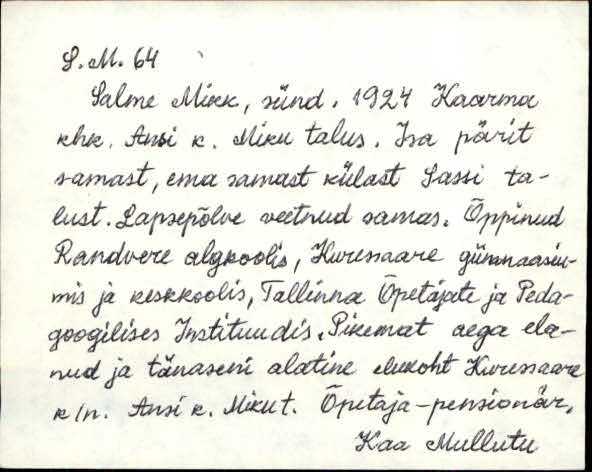 S.M. 64
Salme Mikk, sünd. 1924 Kaarma
khk. Ansi k. Miku talus. Isa pärit
samast, ema samast külast Sassi ta-
lust. Lapsepõlve veetnud samas. Õppinud
Randvere algkoolis, Kuressaare gümnaasiu-
mis ja keskkoolis, Tallinna Õpetajate ja Peda-
googilises Instituudis. Pikemat aega ela-
nud ja tänaseni alatine elukoht Kuressaare
k/n. Ansi k. Miku t. Õpetaja-pensionär.
Kaa Mullutu